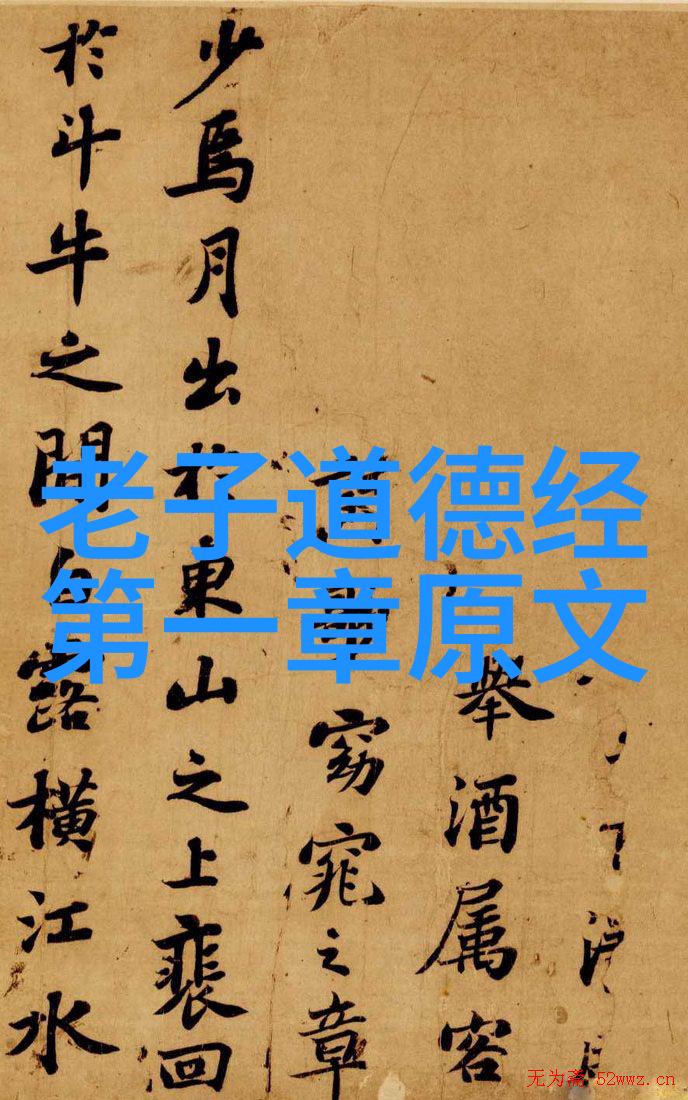 老子道德经
第一章原文
舉酒属客
窈窕之章
少焉月出於東山之上裵回
於斗牛之間露橫江水
无为斋 52wwz.cn